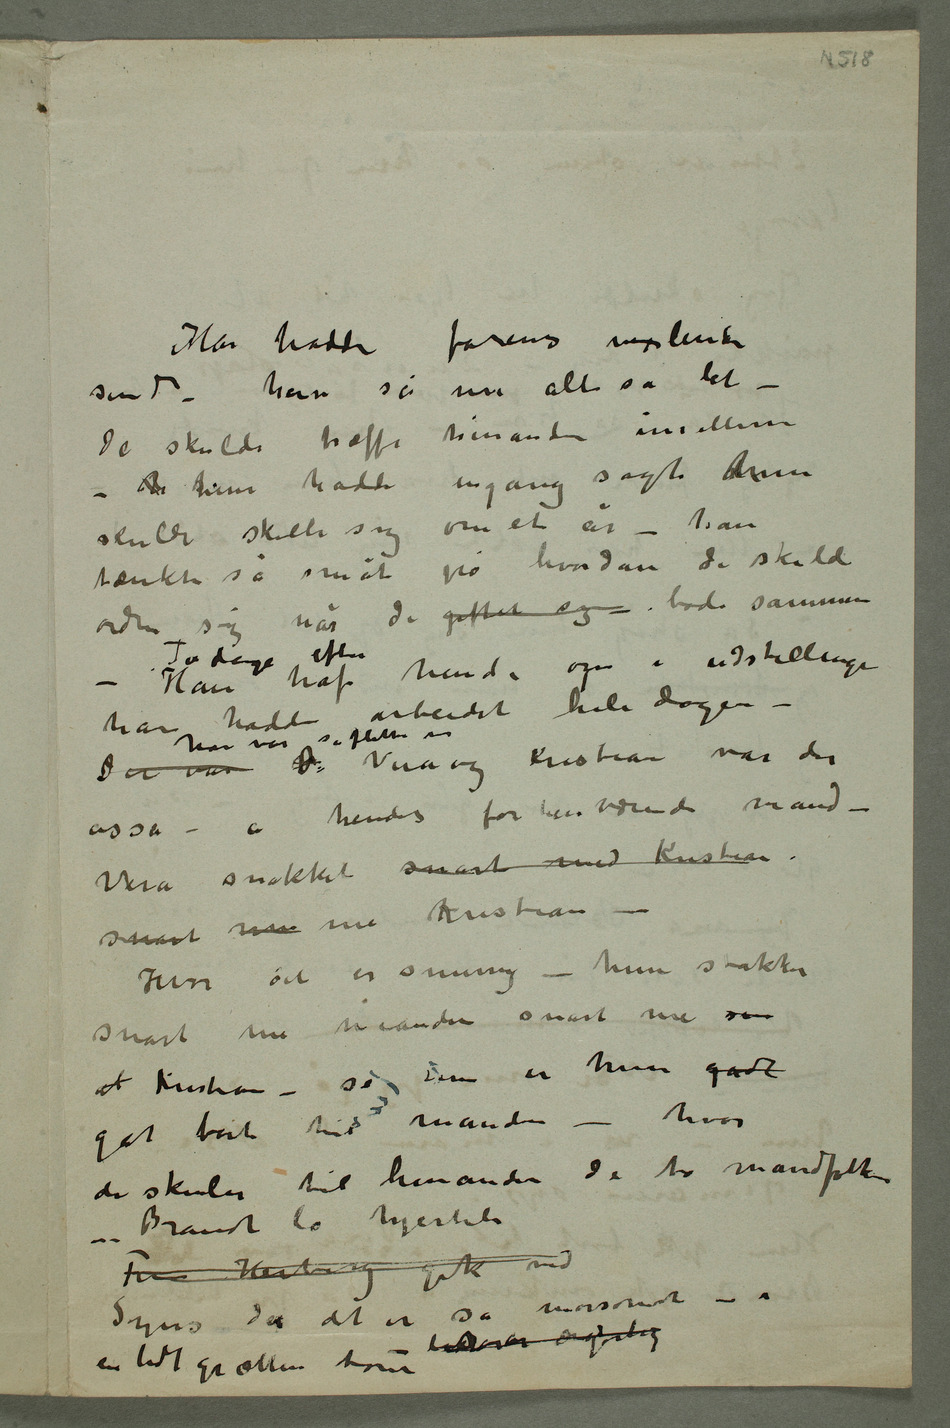 N518
Han hadde farens vexlende
sind – han så nu alt så let –
de skulde træffe hinanden imellem
– de hun hadde engang sagt hun
skulde skille sig om et år – han
tænkte så småt på hvordan de skulde
ordne sig når de giftet sig – bode sammen
To dage efter
– Han traf hende oppe i udstillingen
han hadde arbeidet hele dagen –
han var så flittig nu
Der var De Vera og Kristian var der
osså – og hendes forhenværende mand –
Vera snakket snart med Kristian.
snart me Kristian –
Hvor det er snurrig – hun snakker
snart me hinanden snart me
at Kristian – så nu er hun gådt
gåt bort til manden – hvor
de skuler til hinanden de to mandfolkene
– Brandt lo hjertelig
Fru Heiberg gik ved
Synes du det er så morsomt – i
en lidt gretten tone